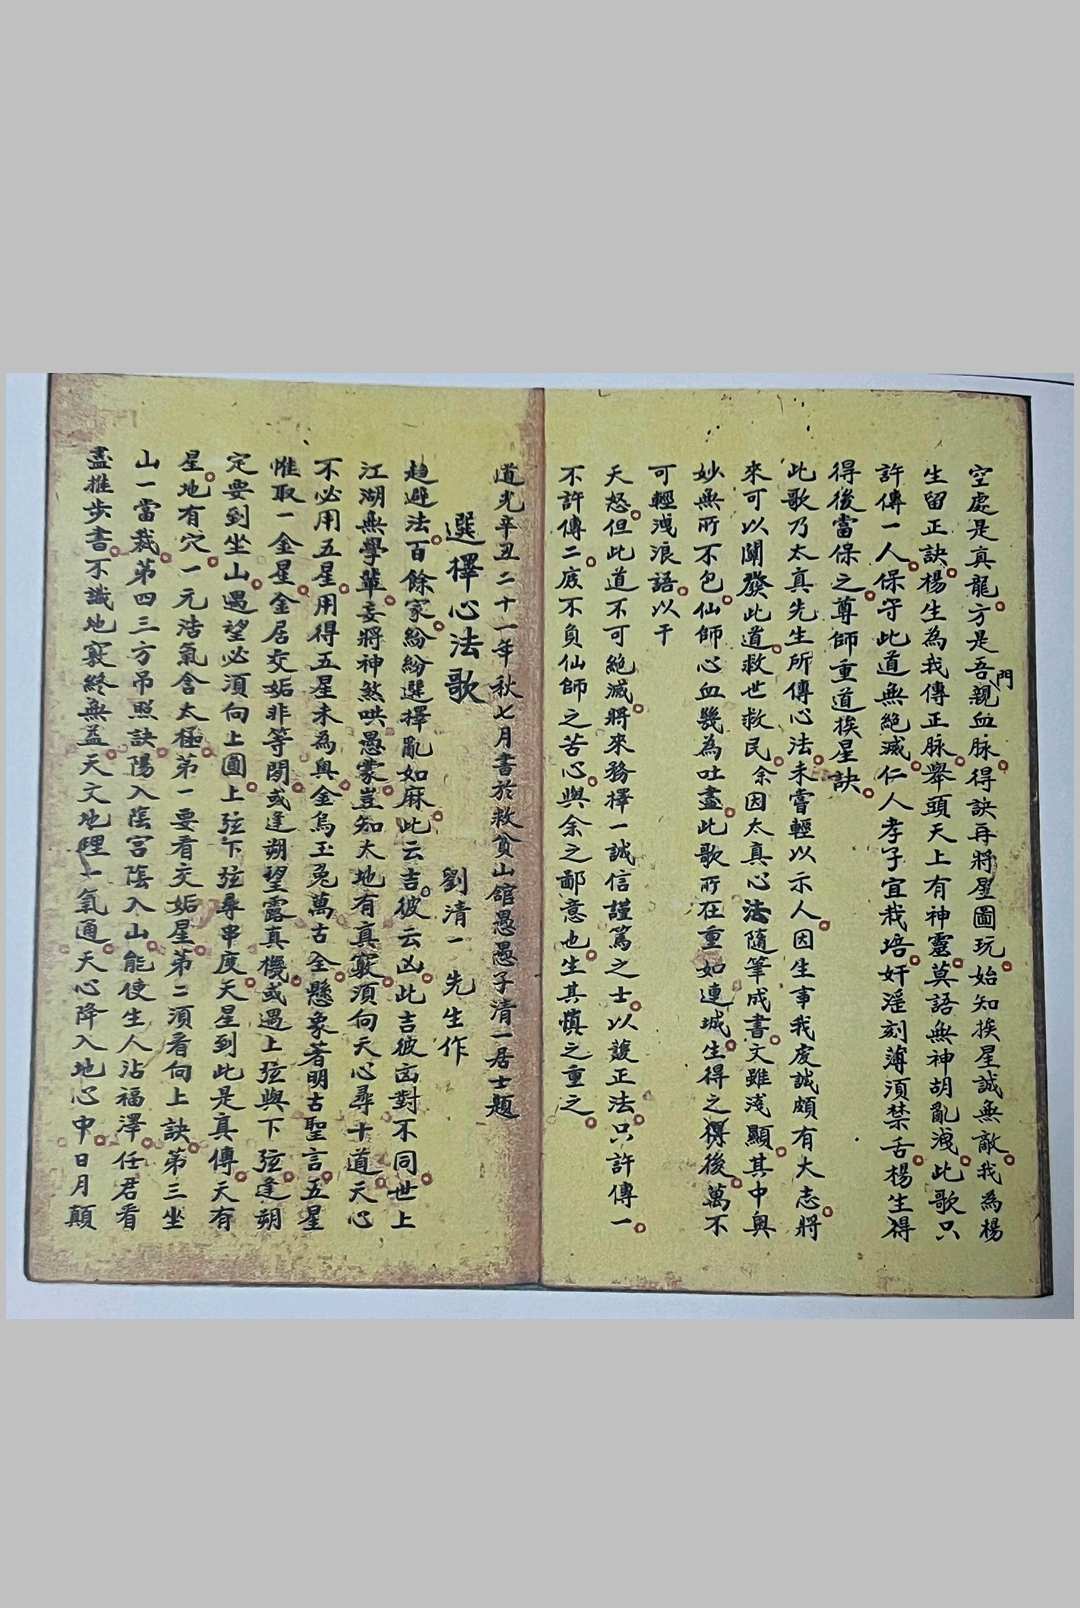 空處是真龍方是吾門親血脉得訣再將星圖玩始知挨星誠無敵我為楊
生留正訣楊生為我傳正脉舉頭天上有神靈莫語無神胡亂洩此歌只
許傳一人保守此道無絕滅仁人孝子宜栽培奸淫刻薄須禁舌楊生得
得後當保之尊師重道挨星訣
此歌乃太真先生所傳心法未嘗輕以示人因生事我虔誠頗有大志將
來可以闡發此道救世救民余因太真心法隨筆成書文雖淺顯其中奧
妙無所不包仙師心血幾為吐盡此歌所在重如連城生得之得後萬不
可輕洩浪語以干
天怒但此道不可絕滅將來務擇一誠信謹篤之士以護正法只許傳一
不許傳二庶不負仙師之苦心與余之鄙意也生其慎之重之
道光辛丑二十一年秋七月書於救貧山舘愚愚子清一居士題
選擇心法歌
劉清一先生作
趋避法百餘家紛紛選擇亂如麻此云吉彼云凶此吉彼凶對不同世上
江湖無學輩妄將神煞哄愚蒙豈知太地有真竅須向天心尋十道天心
不必用五星用得五星未為與金烏玉兔萬古全懸象著明古聖言五星
惟取一金星金居交姤非等閒或逢朔望露真機或遇上弦與下弦逢朔
定要到坐山遇望必須向上圓上弦下弦尋串度天星到此是真傳天有
星地有穴一元浩氣含太極第一要看交姤星第二須看向上訣第三坐
山一當裁第四三方吊照訣陽入陰宫陰入山能使生人沾福澤任君看
盡推步書不識地竅終無益天文地理一氣通天心降入地心中日月顛